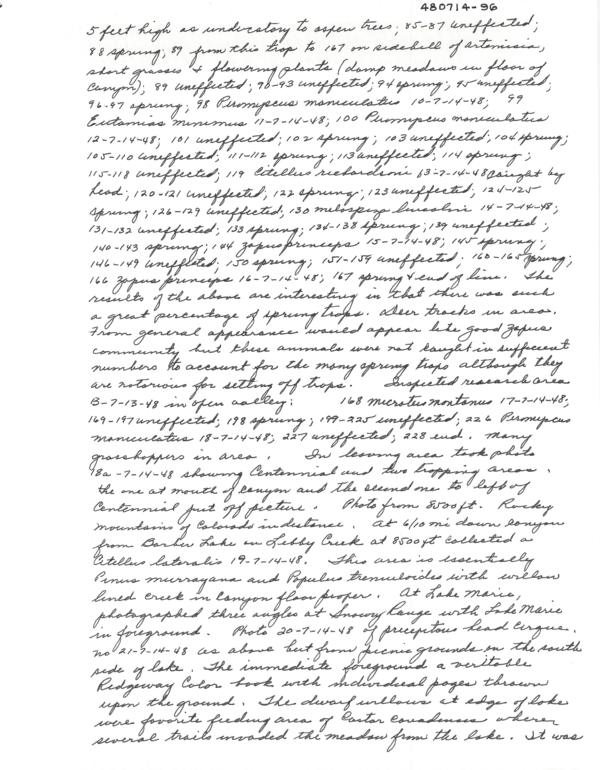 480714-96
5 feet high as understory to aspen trees; 85-87 uneffected;
88 sprung; 89 from this trap to 167 on sidehill of artemisia,
short grasses & flowering plants (damp meadows in floor of
canyon); 89 uneffected; 90-93 uneffected; 94 sprung; 95 uneffected;
96-97 sprung; 98 Peromyscus maniculatus 10-7-14-48; 99
Eutamias minimus 11-7-14-48; 100 Peromyscus maniculatus
12-7-14-48; 101 uneffected; 102 sprung; 103 uneffected; 104 sprung;
105-110 uneffected; 111-112 sprung; 113 uneffected; 114 sprung;
115-118 uneffected; 119 Citellus richardsoni 63-7-14-48 caught by
head; 120-121 uneffected; 122 sprung; 123 uneffected; 124-125
sprung; 126-129 uneffected; 130 melospiza lincolni 14-7-14-48;
131-132 uneffected; 133 sprung; 134-138 sprung; 139 uneffected;
140-143 sprung; 144 Zapus princeps 15-7-14-48; 145 sprung;
146-149 uneffected; 150 sprung; 151-159 uneffected; 160-165 sprung;
166 Zapus princeps 16-7-14-48; 167 sprung & end of line. The
results of the above are interesting in that there was such
a great percentage of sprung traps. Deer tracks in area.
From general appearance would appear be good Zapus
community but these animals were not caught in sufficient
numbers to account for the many sprung traps although they
are notorious for setting off traps. Inspected research area
B-7-13-48 in open valley: 168 microtus montanus 17-7-14-48;
169-197 uneffected; 198 sprung; 199-225 uneffected; 226 Peromyscus
maniculatus 18-7-14-48; 227 uneffected; 228 end. Many
grasshoppers in area. In leaving area took photo
18a-7-14-48 showing Centennial and two trapping areas.
the one at mouth of canyon and the second one to left of
Centennial just off picture. Photo from 8500 ft. Rocky
mountains of Colorado in distance. At 6/10 mi down canyon
from Barber Lake on Libby Creek at 8500 ft collected a
Citellus lateralis 19-7-14-48. This area is essentially
Pinus murrayana and Populus tremuloides with willow
lined creek in canyon floor proper. At Lake Marie,
photographed three angles at Snowy Range with Lake Marie
in foreground. Photo 20-7-14-48 of precipitous head cirque.
no 21-7-14-48 as above but from picnic grounds on the south
side of lake. The immediate foreground a veritable
Ridgeway Color book with individual pages thrown
upon the ground. The dwarf willows at edge of lake
were favorite feeding area of Castor canadensis where
several trails invaded the meadow from the lake. It was